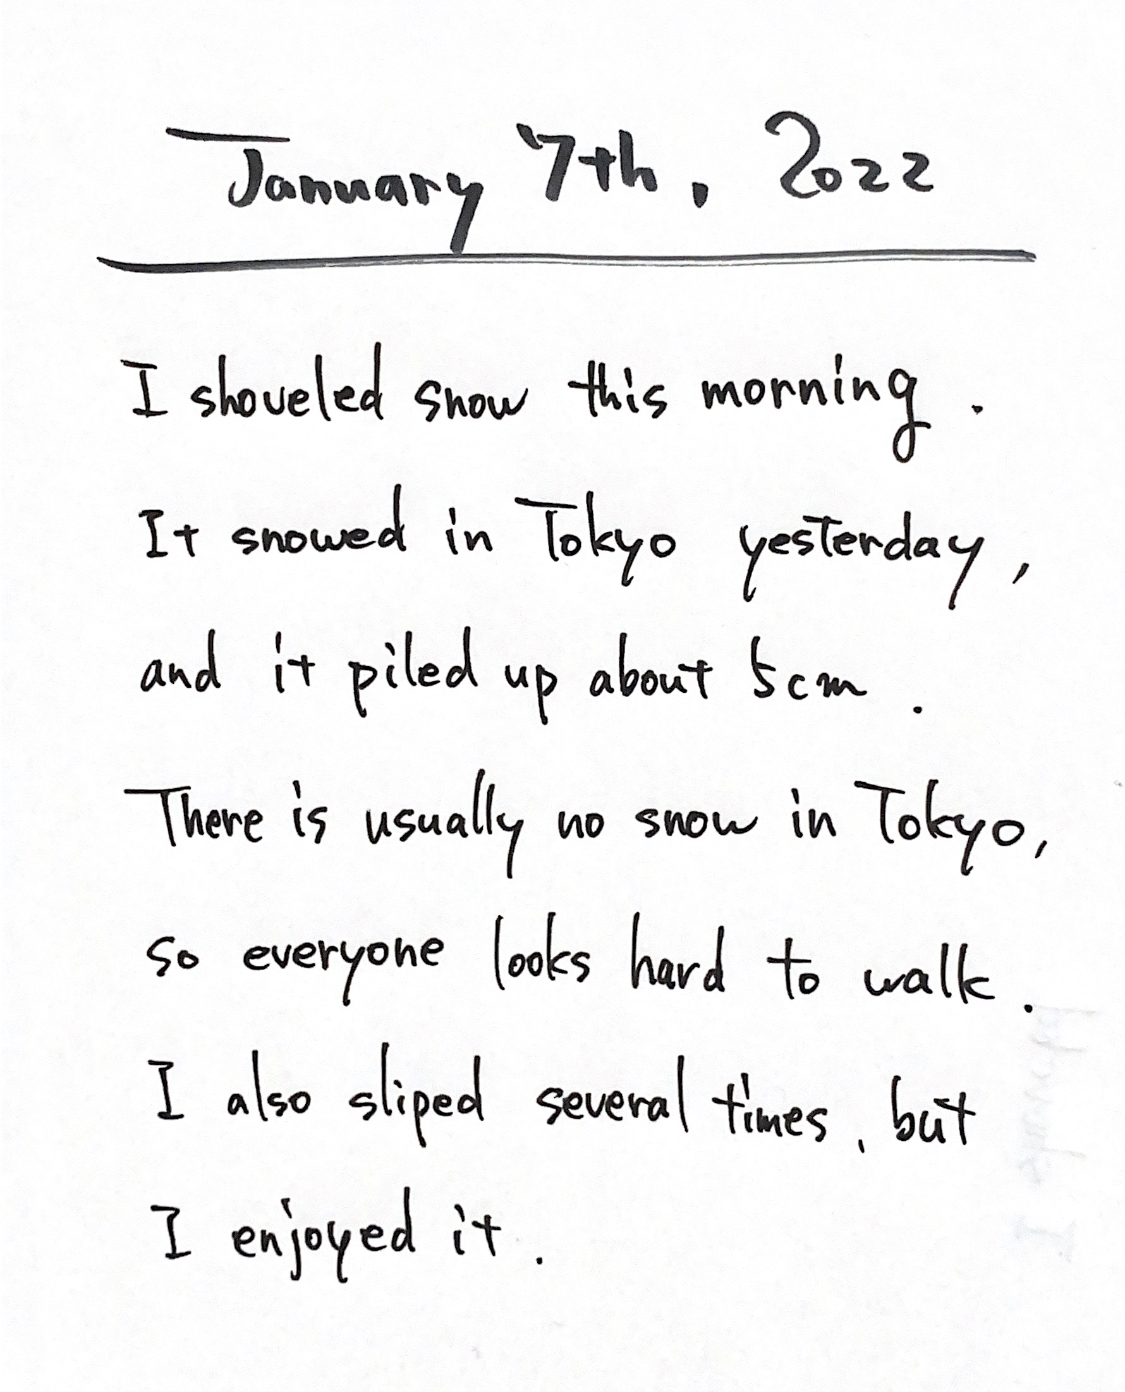 January 7th, 2022
I shoveled snow this morning.
It snowed in Tokyo yesterday,
and it piled up about 5cm.
There is usually no snow in Tokyo,
so everyone looks hard to walk.
I also sliped several times, but
I enjoyed it.